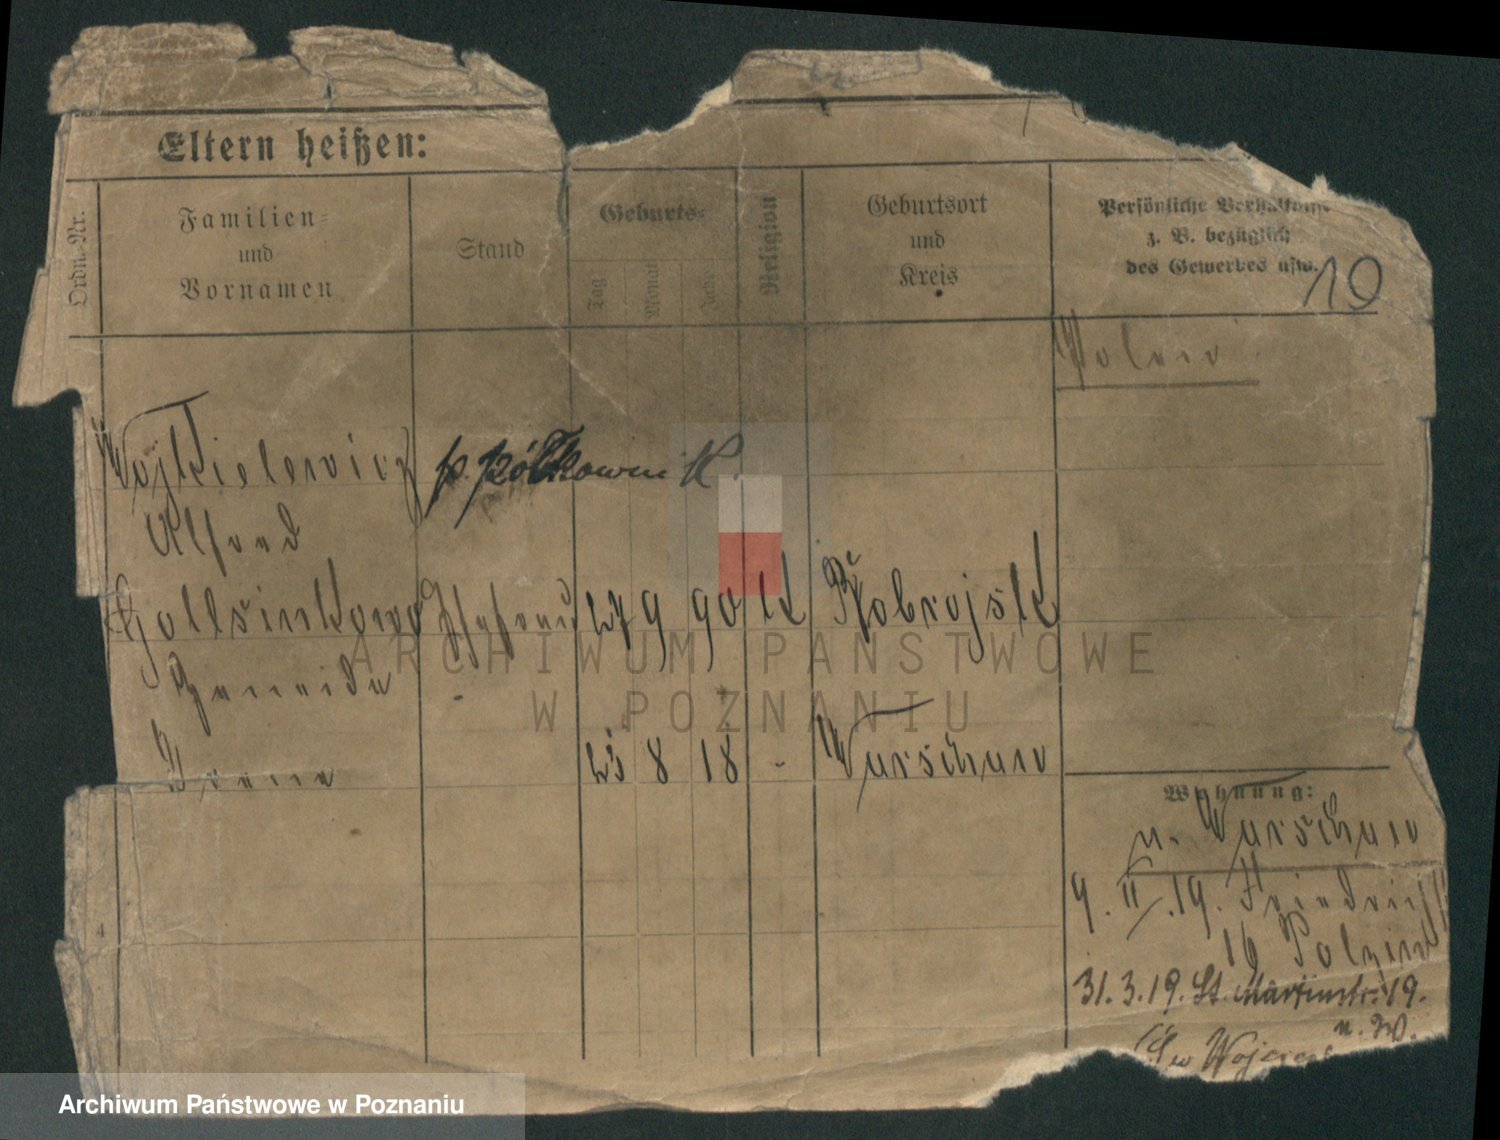 Eltern heißen:
Ordn.-Nr.
Familien-
und
Vornamen
Stand
Geburts-
Tag
Monat
Jahr
Religion
Geburtsort
und
Kreis
Persönliche Verhältnisse
z. B. bezüglich
des Gewerbes usw.
10
Wojtkielewicz p. półkownik.
Alfred
27 9 90 K
Irena
23 8 18 - Warschau
4
Wohnung:
n. Warschau
9. II. 19.
16
31. 3. 19. St. Martinstr. 19.
ARCHIWUM PAŃSTWOWE
W POZNANIU
Archiwum Państwowe w Poznaniu